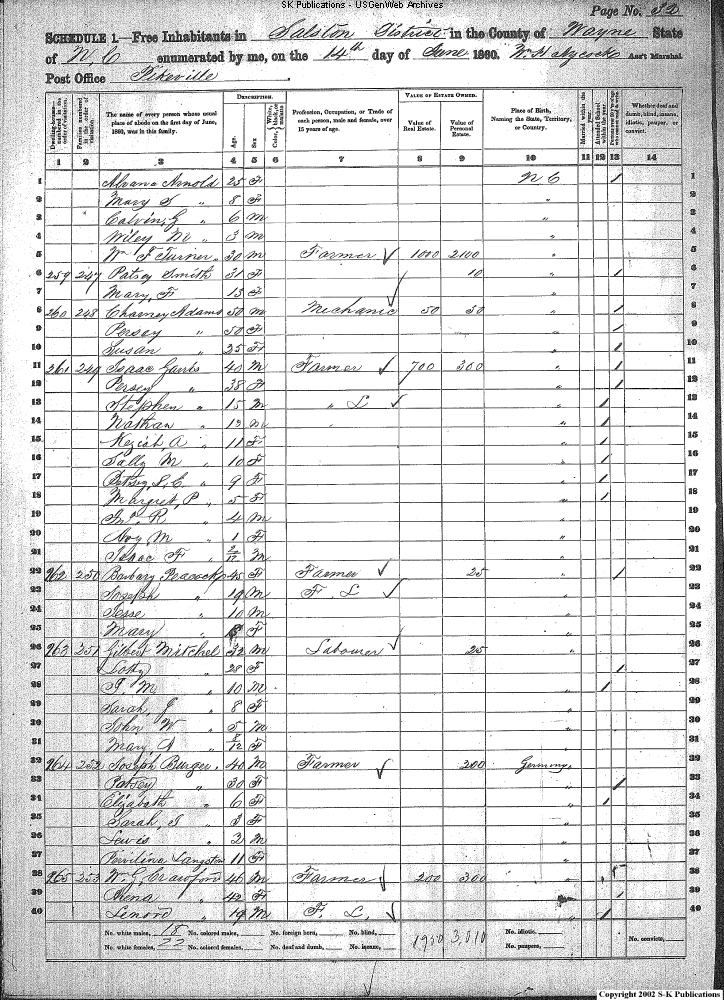 SK Publications - USGenWeb Archives
Page No. 52
SCHEDULE 1.—Free Inhabitants in Salston District in the County of Wayne State
of N. C enumerated by me, on the 14th day of June 1860. Ass't Marshal
Post Office Pikeville
DESCRIPTION. VALUE OF ESTATE OWNED.
Dwelling-houses—numbered in the order of visitation. Families numbered in the order of visitation. The name of every person whose usual place of abode on the first day of June, 1860, was in this family. Age. Sex. Color, White, black, or mulatto. Profession, Occupation, or Trade of each person, male and female, over 15 years of age. Value of Real Estate. Value of Personal Estate. Place of Birth, Naming the State, Territory, or Country. Married within the year. Attended School within the year. Whether deaf and dumb, blind, insane, idiotic, pauper, or convict.
1 2 3 4 5 6 7 8 9 10 11 12 13 14
1 Arnold 25 F N C / 1
2 Mary S " 8 F " 2
3 Calvin, G " 6 M " 3
4 Wiley M " 3 M " 4
5 Wm F Turner 30 M Farmer 1000 2100 " 5
6 259 247 Patsey Smith 31 F 10 " / 6
7 Mary, F 13 F " 7
8 260 248 Adams 50 M Mechanic 50 50 " / 8
9 Persey " 50 F " / 9
10 Susan " 25 F " / 10
11 261 249 Isaac Garris 40 M Farmer 700 300 " / 11
12 Persey " 38 F " / 12
13 Stephen " 15 M " L " / 13
14 Nathan " 12 M " / 14
15 Keziah, A " 11 F " / 15
16 Sally M " 10 F " / 16
17 Betsy, S, C " 9 F " / 17
18 Margret, P " 5 F " / 18
19 Jno. R " 4 M " 19
20 M " 1 F " 20
21 Isaac F " 2/12 M " 21
22 262 250 Barbary Peacock 45 F Farmer 25 " / 22
23 Joseph " 19 M F L " 23
24 Jesse " 10 M " 24
25 Mary " 8 F " 25
26 263 251 Gilbert Mitchel 32 M Labourer 25 " 26
27 28 F " / 27
28 M " 10 M " / 28
29 Sarah, J " 8 F " 29
30 John W " 5 M " 30
31 Mary, A " 8/12 F " 31
32 264 252 Joseph Burger 40 M Farmer 200 Germany 32
33 Patsey " 30 F " / 33
34 Elizabeth " 6 F " / 34
35 Sarah, J " 3 F " 35
36 Lewis " 2 M " 36
37 Langston 11 F " 37
38 265 253 W. G. Crawford 46 M Farmer 200 300 " 38
39 " 42 F " / 39
40 Lenord " 19 M F. L. " / 40
No. white males, 18 No. colored males, No. foreign born, No. blind, 1950 3,010 No. idiotic,
No. white females, 22 No. colored females, No. deaf and dumb, No. insane, No. paupers, No. convicts,
Copyright 2002 S-K Publications